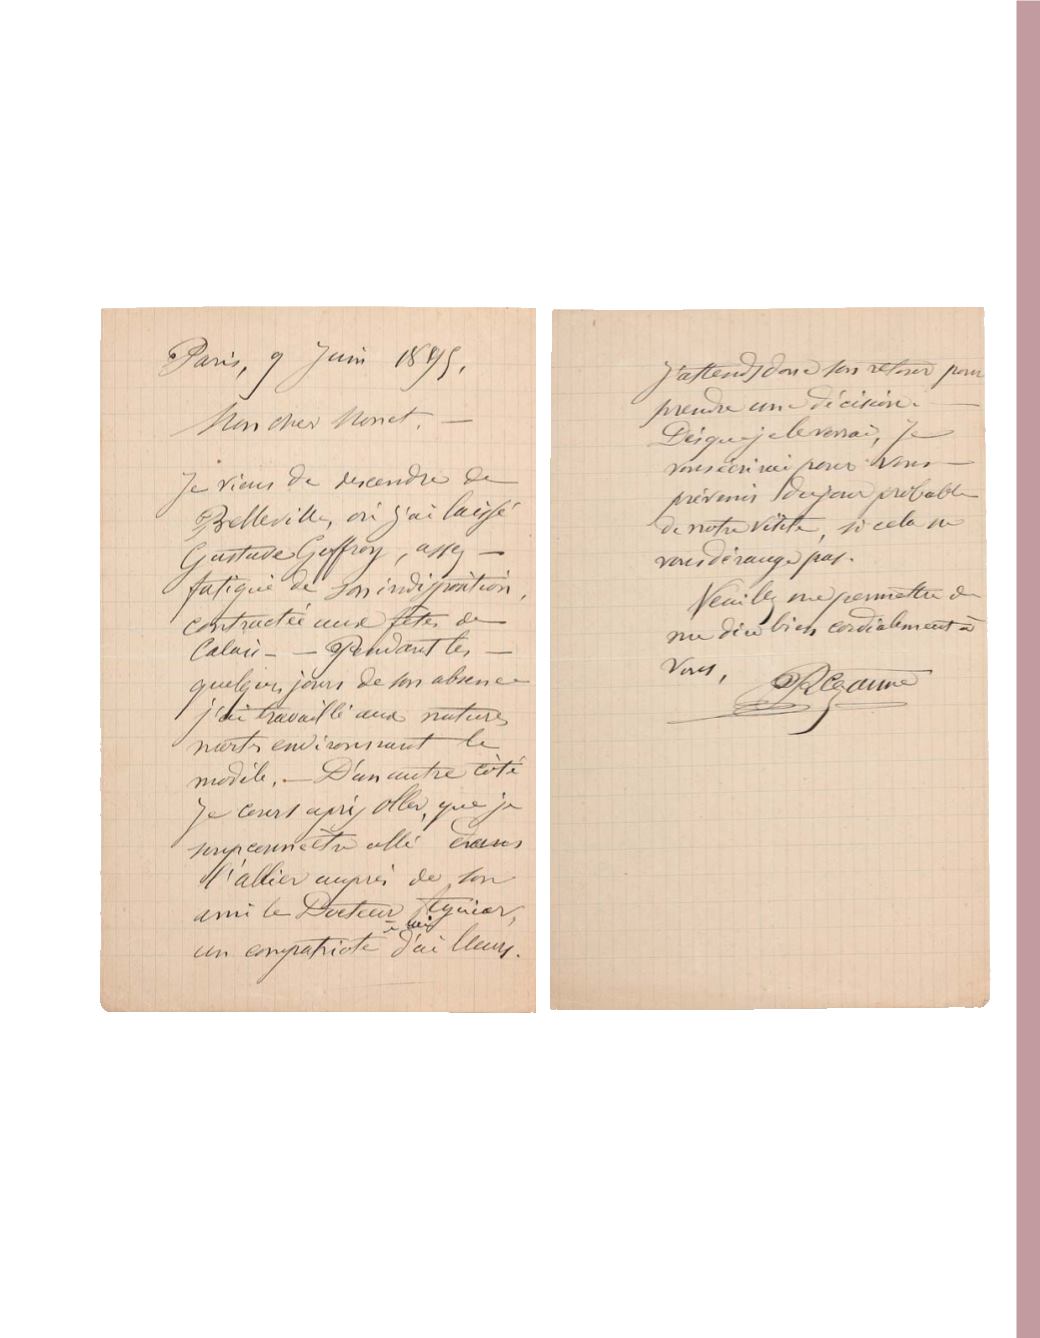 Paris, 9 Juin 1895,
Mon cher Monet. —
Je viens de descendre de
Belleville, où j'ai laissé
Gustave Geffroy, assez —
fatigué de son indisposition,
contractée aux fêtes de
Calais — — Pendant les —
quelques jours de son absence
j'ai travaillé aux natures
mortes environnant le
modèle. — D'un autre côté
Je cours après Oller, que je
soupçonne être allé dans
l'allier auprès de son
ami le Docteur Aguiar,
un compatriote à lui d'ailleurs.
J'attends donc son retour pour
prendre une décision. —
Dès que je le verrai, Je
vous écrirai pour vous —
prévenir du jour probable
de notre visite, si cela ne
vous dérange pas.
Veuillez me permettre de
me dire bien cordialement à
vous,
P Cezanne